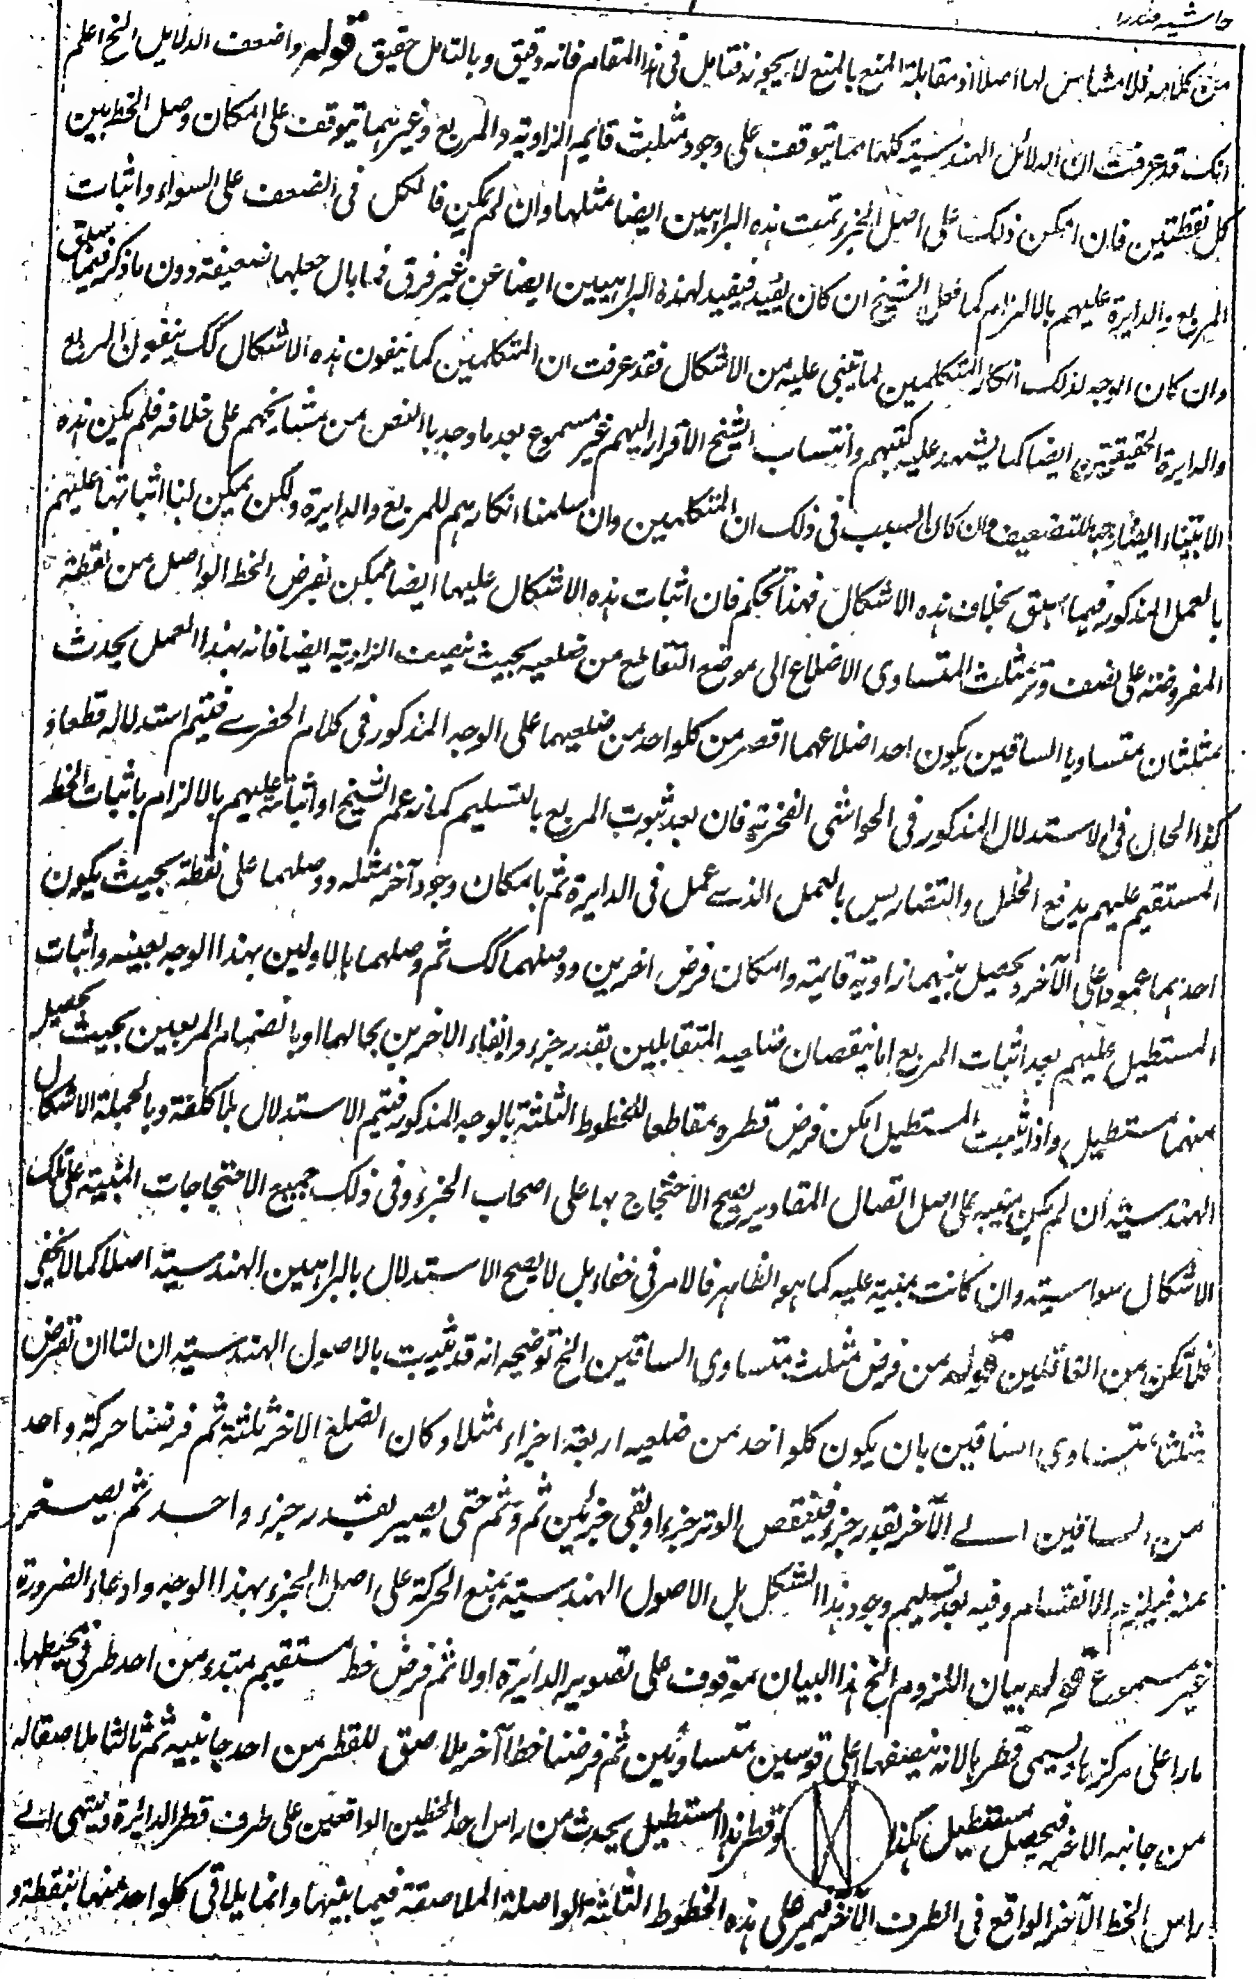 حاشیہ صدرا
من کلامہ فلا مشاہس لہا اصلا اذ مقابلۃ المنع بالمنع لا یجوز فتامل فی ہذا المقام فانہ دقیق و بالتامل حقیق قولہ واضعف الدلایل الخ اعلم
انک قد عرفت ان الدلائل الہندسیۃ کلہا مما یتوقف علی وجود مثلث قایم الزاویۃ والمربع وغیرہما یتوقف علی امکان وصل الخط بین
کل نقطتین فان امکن ذلک علی اصل الجزء تمت ہذہ البراہین ایضا مثلہا وان لم یمکن فالکل فی الضعف علی السواء واثبات
المربع والدایرۃ علیہم بالالزام کما فعلہ الشیخ ان کان یفید فیفید لہذہ البراہین ایضا من غیر فرق فما بال جعلہا ضعیفۃ دون ما ذکر فیما سبق
وان کان الوجہ لذلک انکار المتکلمین لما یبتنی علیہ من الاشکال فقد عرفت ان المتکلمین کما ینفون ہذہ الاشکال کک ینفون المربع
والدایرۃ الحقیقیۃ ایضا کما یشہد علیہ کتبہم وانتساب الشیخ الاقرار الیہم غیر مسموع بعد ما وجد بالنص من مشایخہم علی خلافہ فلم یکن ہذہ
الابتناء ایضا وجہا للتضعیف وان کان السبب فی ذلک ان المتکلمین وان سلمنا انکارہم للمربع والدایرۃ ولکن یمکن لنا اثباتہا علیہم
بالعمل المذکور فیما سبق بخلاف ہذہ الاشکال فہذا تحکم فان اثبات ہذہ الاشکال علیہما ایضا ممکن بفرض الخط الواصل من نقطۃ
المفروضۃ علی نصف وتر مثلث المتساوی الاضلاع الی موضع التقاطع من ضلعیہ بحیث ینصف الزاویۃ ایضا فانہ بہذا العمل یحدث
مثلثان متساویا الساقین یکون احد اضلاعہما اقصر من کلواحد من ضلعیہما علی الوجہ المذکور فی کلام الحضرے فیتم استدلالہ قطعا و
کذا الحال فی الاستدلال المذکور فی الحواشی الفخریۃ فان بعد ثبوت المربع بالتسلیم کما زعم الشیخ او اثباتہ علیہم بالالزام باثبات الخط
المستقیم علیہم یدفع الخلل والتضاریس بالعمل الذے عمل فی الدایرۃ ثم بامکان وجود آخر مثلہ ووصلہما علی نقطۃ بحیث یکون
احدہما عمودا علی الآخر ویحصل بینہما زاویۃ قایمۃ وامکان فرض اخرین ووصلہما کک ثم وصلہما بالاولین بہذا الوجہ بعینہ واثبات
المستطیل علیہم بعد اثبات المربع اما بنقصان ضلعیہ المتقابلین بقدر جزء وابقاء الاخرین بحالہما او بانضمام المربعین بحیث یحصل
منہما مستطیل واذا ثبت المستطیل امکن فرض قطرہ مقاطعا للخطوط الثلثۃ بالوجہ المذکور فیتم الاستدلال بلا کلفۃ وبالجملۃ الاشکال
الہندسیۃ ان لم یکن مبنیۃ علی اصل اتصال المقادیر یصح الاحتجاج بہا علی اصحاب الجزء وفی ذلک جمیع الاحتجاجات المبنیۃ علی تلک
الاشکال سواسیۃ وان کانت مبنیۃ علیہ کما ہو الظاہر فالامر فی خفاء بل لا یصح الاستدلال بالبراہین الہندسیۃ اصلا کما لا یخفی
فلا تکن من الغافلین قولہ من فرض مثلث متساوی الساقین الخ توضیحہ انہ قد ثبت بالاصول الہندسیۃ ان لنا ان نفرض
مثلثا متساوی الساقین بان یکون کلواحد من ضلعیہ اربعۃ اجزاء مثلا وکان الضلع الاخر ثلثۃ ثم فرضنا حرکۃ واحد
من الساقین الے الآخر بقدر جزء فینقص الوتر جزءا وبقی جزئین ثم وثم حتی یصیر بقدر جزء واحد ثم یصغر
منہ فیلزم الانقسام وفیہ بعد تسلیم وجود ہذا الشکل بل الاصول الہندسیۃ یمنع الحرکۃ علی اصل الجزء بہذا الوجہ وادعاء الضرورۃ
غیر مسموع قولہ بیان اللزوم الخ ہذا البیان موقوف علی تصویر الدایرۃ اولا ثم فرض خط مستقیم مبتدء من احد طرفی محیطہا
مارا علی مرکزہا ویسمی قطرہا لانہ ینصفہا علی قوسین متساویین ثم فرضنا خطا آخر ملاصق للقطر من احد جانبیہ ثم ثالثا ملاصقا لہ
من جانبہ الاخر فیحصل مستطیل ہکذا وقطر ہذا المستطیل یحدث من راس احد الخطین الواقعین علی طرف قطر الدائرۃ وینتہی الے
راس الخط الآخر الواقع فی الطرف الآخر فیمر علی ہذہ الخطوط الثلثۃ الواصلۃ الملاصقۃ فیما بینہا وانما یلاقی کلواحد منہا بنقطۃ و